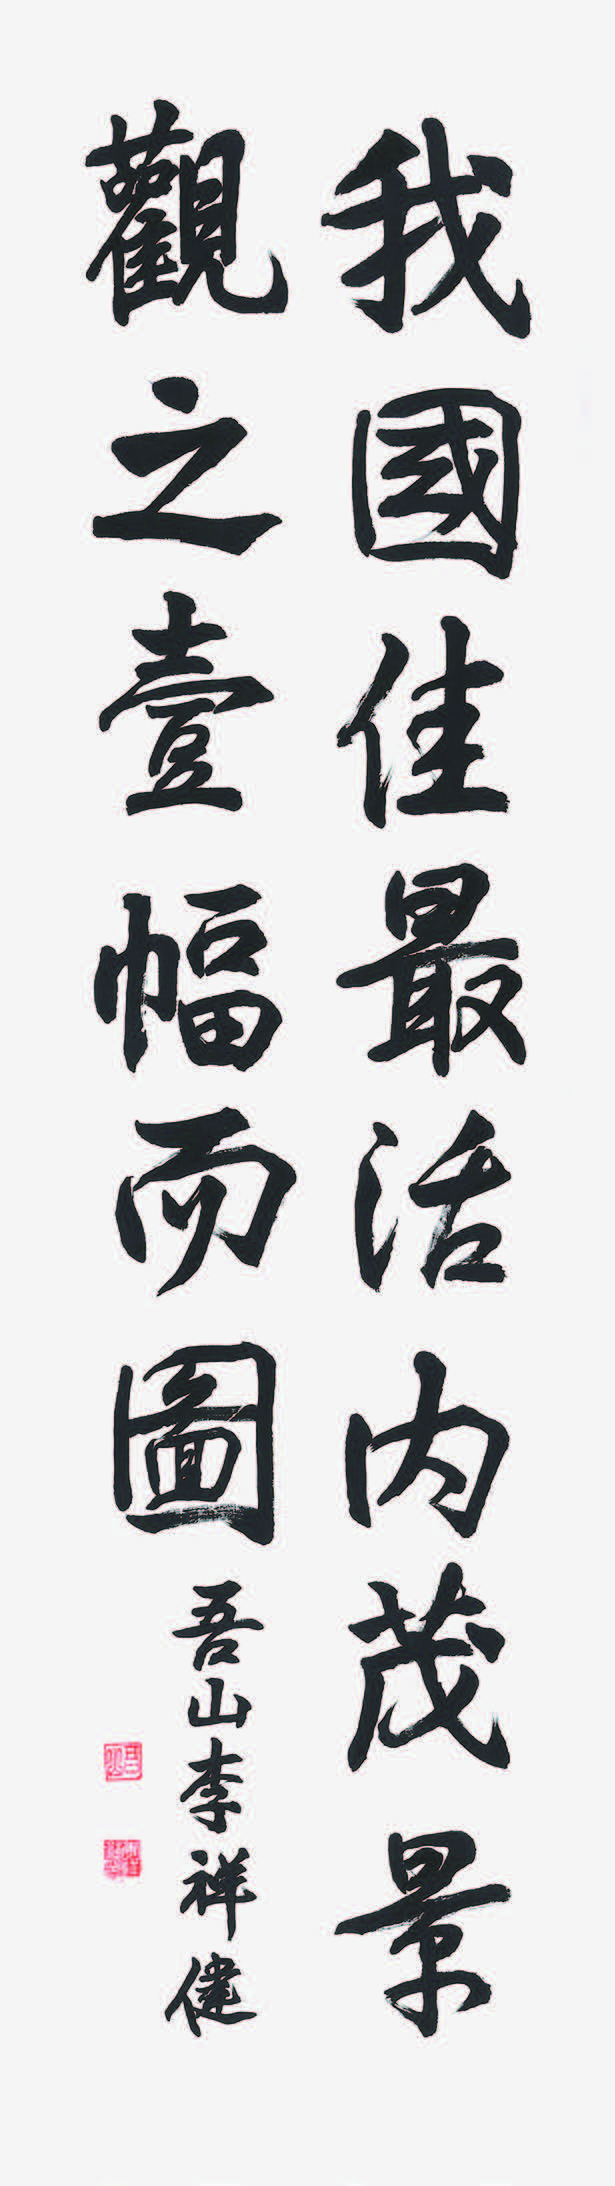 我國佳最活内茂景
觀之壹幅而圖
吾山李祥健